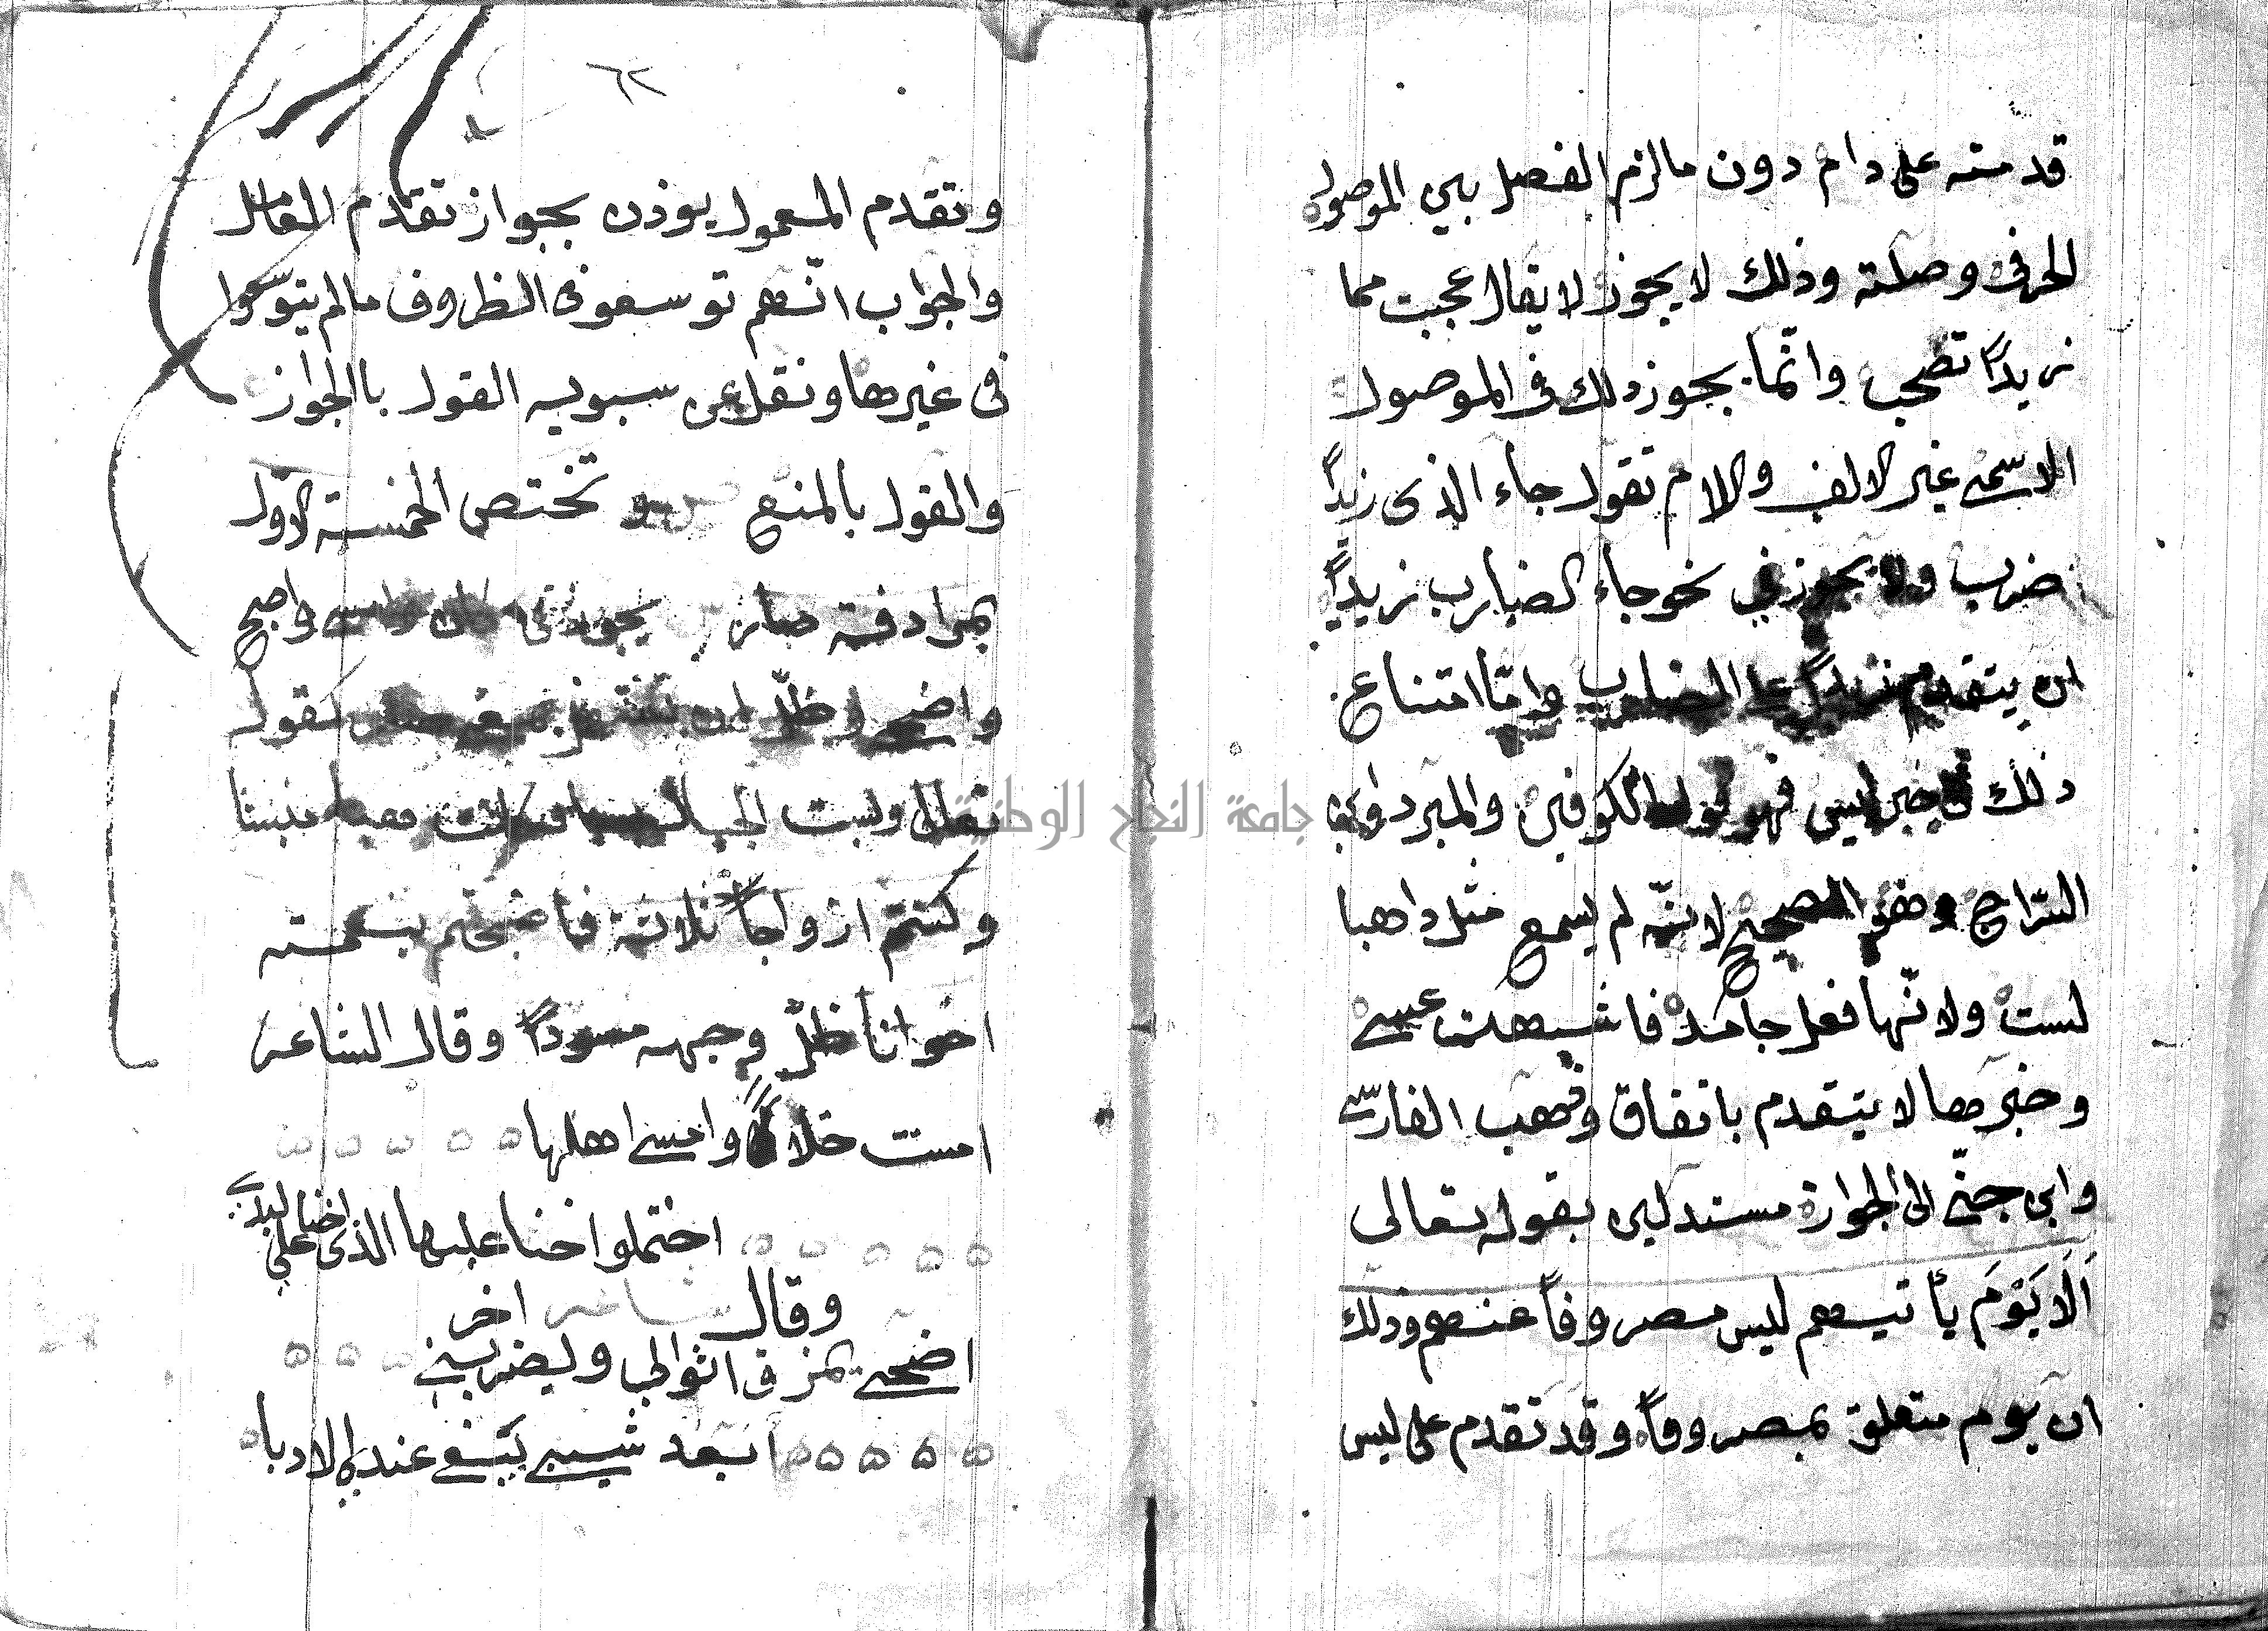 قدمته على دام دون ما لزم الفصل بين الموصول
الحرفي وصلته وذلك لا يجوز لا يقال عجبت مما
زيداً تصحب وانّما يجوز ذلك في الموصول
الاسمى غير الالف واللام تقول جاء الذى زيداً
ضرب ولا يجوز في نحو جاء الضارب زيداً
ان يتقدم زيداً على الضارب وامّا امتناع
ذلك في خبر ليس فهو قول الكوفين والمبرد وابن
السّراج وهو الصحيح لانّه لم يسمع مثل ذاهبا
لست ولانّها فعل جامد فاشبهت عسى
وخبرها لا يتقدم باتفاق وذهب الفارسى
وابن جنّى الى الجواز مستدلين بقوله تعالى
اَلَا يَوْمَ يأتيهم ليس مصروفاً عنهم وذلك
ان يوم متعلق بمصروفاً وقد تقدم على ليس
٦٢
وتقدم المعمول يوذن بجواز تقدم العامل
والجواب انّهم توسعو فى الظروف ما لم يتوسّعوا
فى غيرها ونقل عن سبويه القول باالجواز
والقول بالمنع وتختص الخمسة الاول
بمرادفة صار يجوز فى كان وامسى واصبح
واضحى وظلّ ان كقوله
تعالى وبست الجبال بسا فكانت هباء منبثا
وكنتم ازواجاً ثلاثة فاصبحتم بنعمته
اخوانا ظلّ وجهه مسوداً وقال الشاعر
امست خلاءً وامسى اهلها
احتملوا اخنا عليها الذى اخنا على لبد
وقال شاعر اخر
اضحى يمزق اثوابي ويضربني
ابعد شيبي يبتغي عندي الادبا
جامعة النجاح الوطنية